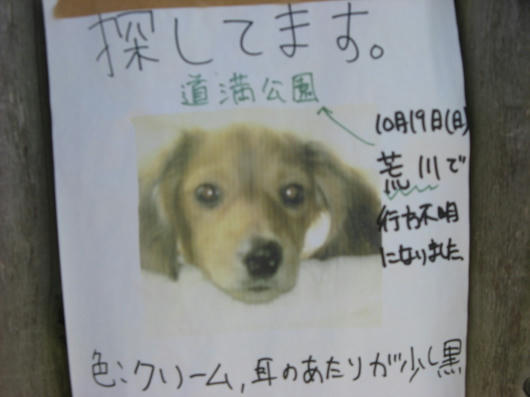 探してます。
道満公園
10月19日(日)
荒川で
行方不明
になりました、
色:クリーム,耳のあたりが少し黒